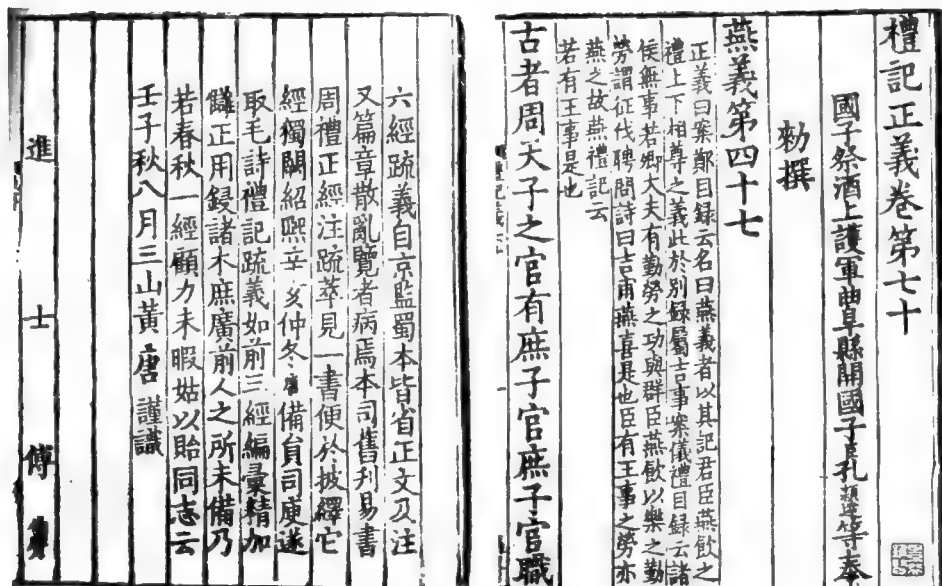 禮記正義卷第七十
國子祭酒上護軍曲阜縣開國子孔穎達等奉
勑撰
燕義第四十七
正義曰案鄭目録云名曰燕義者以其記君臣燕飲之
禮上下相尊之義此於別録屬吉事案儀禮目録云諸
侯無事若卿大夫有勤勞之功與群臣燕飲以樂之勤
勞謂征伐聘問詩曰吉甫燕喜是也臣有王事之勞亦
燕之故燕禮記云
若有王事是也
古者周天子之官有庶子官庶子官職
六經疏義自京監蜀本皆省正文及注
又篇章散亂覽者病焉本司舊刋易書
周禮正經注疏萃見一書便於披繹它
經獨闕紹熙辛亥仲冬唐備員司庾遂
取毛詩禮記疏義如前三經編彙精加
讎正用鋟諸木庶廣前人之所未備乃
若春秋一經顧力未暇姑以貽同志云
壬子秋八月三山黃唐謹識
進士傅